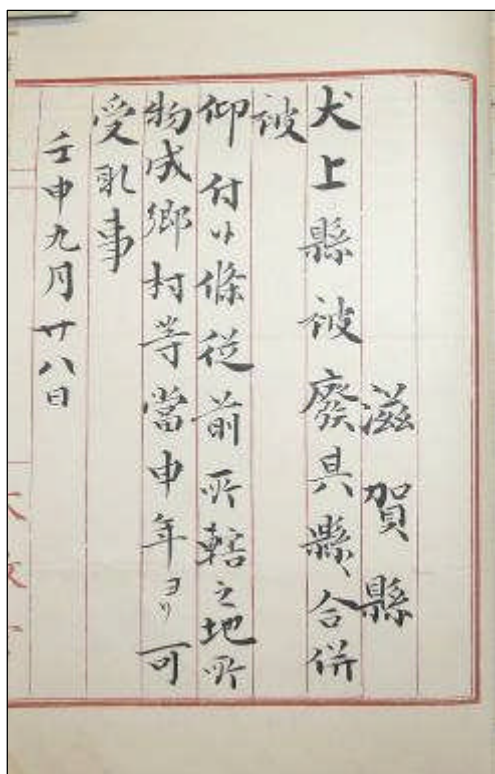 滋賀縣
犬上縣被廢其縣ヘ合併
被
仰付候條従前所轄之地所
物成郷村等當申年ヨリ可
受取事
壬申九月廿八日